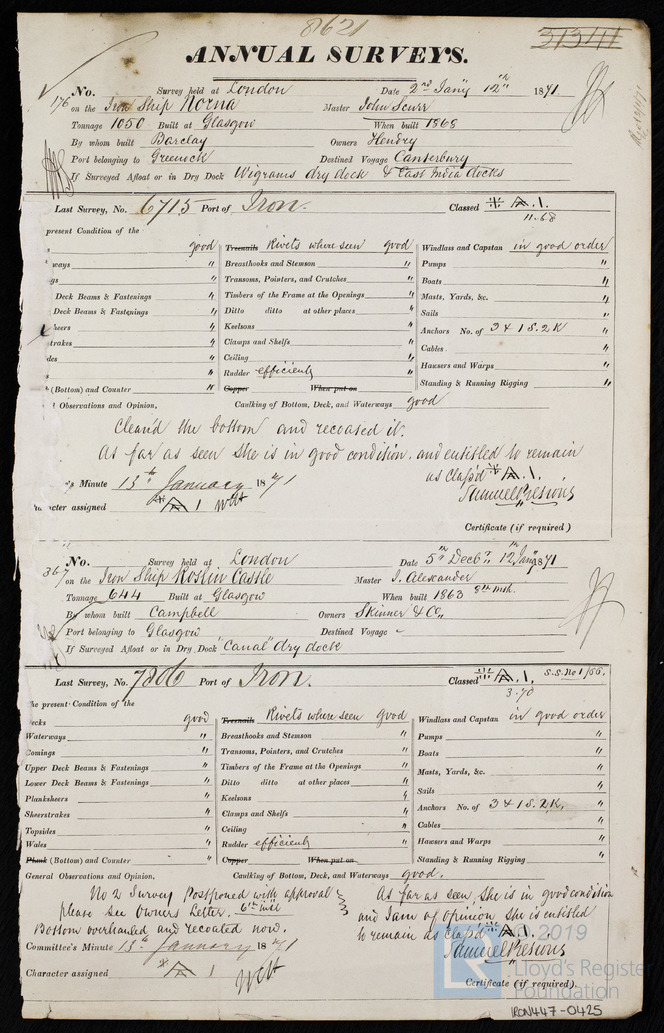 8621
31341
ANNUAL SURVEYS.
No. Survey held at London Date 2nd Jany 12th 1871
176 on the Iron Ship Norna Master John Scurr
Tonnage 1050 Built at Glasgow When built 1868
By whom built Barclay Owners Hendry
Port belonging to Greenock Destined Voyage Canterbury
If Surveyed Afloat or in Dry Dock Wigrams dry dock & East India docks
Last Survey, No. 6715 Port of Iron. Classed A. 1.
11.68
present Condition of the
good Treenails Rivets where seen good Windlass and Capstan in good order
ways " Breasthooks and Stemson " Pumps "
gs " Transoms, Pointers, and Crutches " Boats "
Deck Beams & Fastenings " Timbers of the Frame at the Openings " Masts, Yards, &c. "
Deck Beams & Fastenings " Ditto ditto at other places " Sails "
heers " Keelsons " Anchors No. of 3 & 1 S. 2 K "
trakes " Clamps and Shelfs " Cables "
des " Ceiling " Hawsers and Warps "
s " Rudder efficient Standing & Running Rigging "
(Bottom) and Counter " Copper When put on
l Observations and Opinion, Caulking of Bottom, Deck, and Waterways good
Clean'd the bottom and recoated it.
As far as seen she is in good condition, and entitled to remain
as class'd A. 1.
's Minute 13th January 1871
haracter assigned A 1
Certificate (if required)
No. Survey held at London Date 5th Decbr. 12th Jany 1871
367 on the Iron Ship Roslin Castle Master J. Alexander
Tonnage 644 Built at Glasgow When built 1863 8th mth.
By whom built Campbell Owners Skinner & Co,,
Port belonging to Glasgow Destined Voyage -
If Surveyed Afloat or in Dry Dock "Canal" dry dock
Last Survey, No. 7806 Port of Iron. Classed A. 1. S.S. No 1/66.
3.70
he present Condition of the
Decks good Treenails Rivets where seen good Windlass and Capstan in good order
Waterways " Breasthooks and Stemson " Pumps "
Comings " Transoms, Pointers, and Crutches " Boats "
Upper Deck Beams & Fastenings " Timbers of the Frame at the Openings " Masts, Yards, &c. "
Lower Deck Beams & Fastenings " Ditto ditto at other places " Sails "
Planksheers " Keelsons " Anchors No. of 3 & 1 S. 2 K, "
Sheerstrakes " Clamps and Shelfs " Cables "
Topsides " Ceiling " Hawsers and Warps "
Wales " Rudder efficient Standing & Running Rigging "
Plank (Bottom) and Counter " Copper When put on
General Observations and Opinion, Caulking of Bottom, Deck, and Waterways good.
No 2 Survey Postponed with approval
please see Owners Letter. 6th inst
Bottom overhauled and recoated now.
As far as seen, she is in good condition
and I am of opinion she is entitled
to remain as class'd A. 1.
Committee's Minute 13th January 1871
Character assigned A 1
Certificate (if required).
2019
LR
Lloyd's Register
Foundation
IRON447-0425